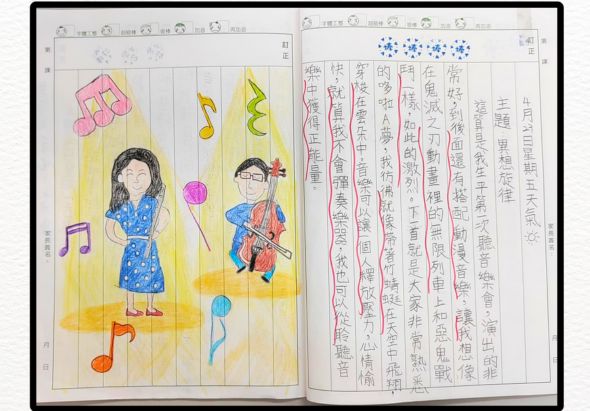 4月29日星期五天氣☼
主題 異想旋律
這算是我生平第一次聽音樂會，演出的非
常好，到後面還有搭配動漫音樂，讓我想像
在鬼滅之刃動畫裡的無限列車上和惡鬼戰
鬥一樣，如此的激烈。下一首就是大家非常熟悉
的哆啦A夢，我彷彿就像帶著竹蜻蜓在天空中飛翔，
穿梭在雲朵中，音樂可以讓個人釋放壓力，心情愉
快，就算我不會彈奏樂器，我也可以從聆聽音
樂中獲得正能量。
訂正
第
課
家長簽名：
月
日
字體工整
超級棒
很棒
加油
再加油
棒
棒
棒
棒
訂正
第
課
家長簽名：
月
日
字體工整
超級棒
很棒
加油
再加油